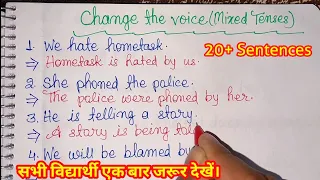 Change the voice.(Mixed Tenses)
1. We hate hometask.
20+ Sentences
⇒ Hometask is hated by us.
2. She phoned the police.
⇒ The police were phoned by her.
3. He is telling a story.
⇒ A story is being tol
4. We will be blamed by
सभी विद्यार्थी एक बार जरूर देखें।